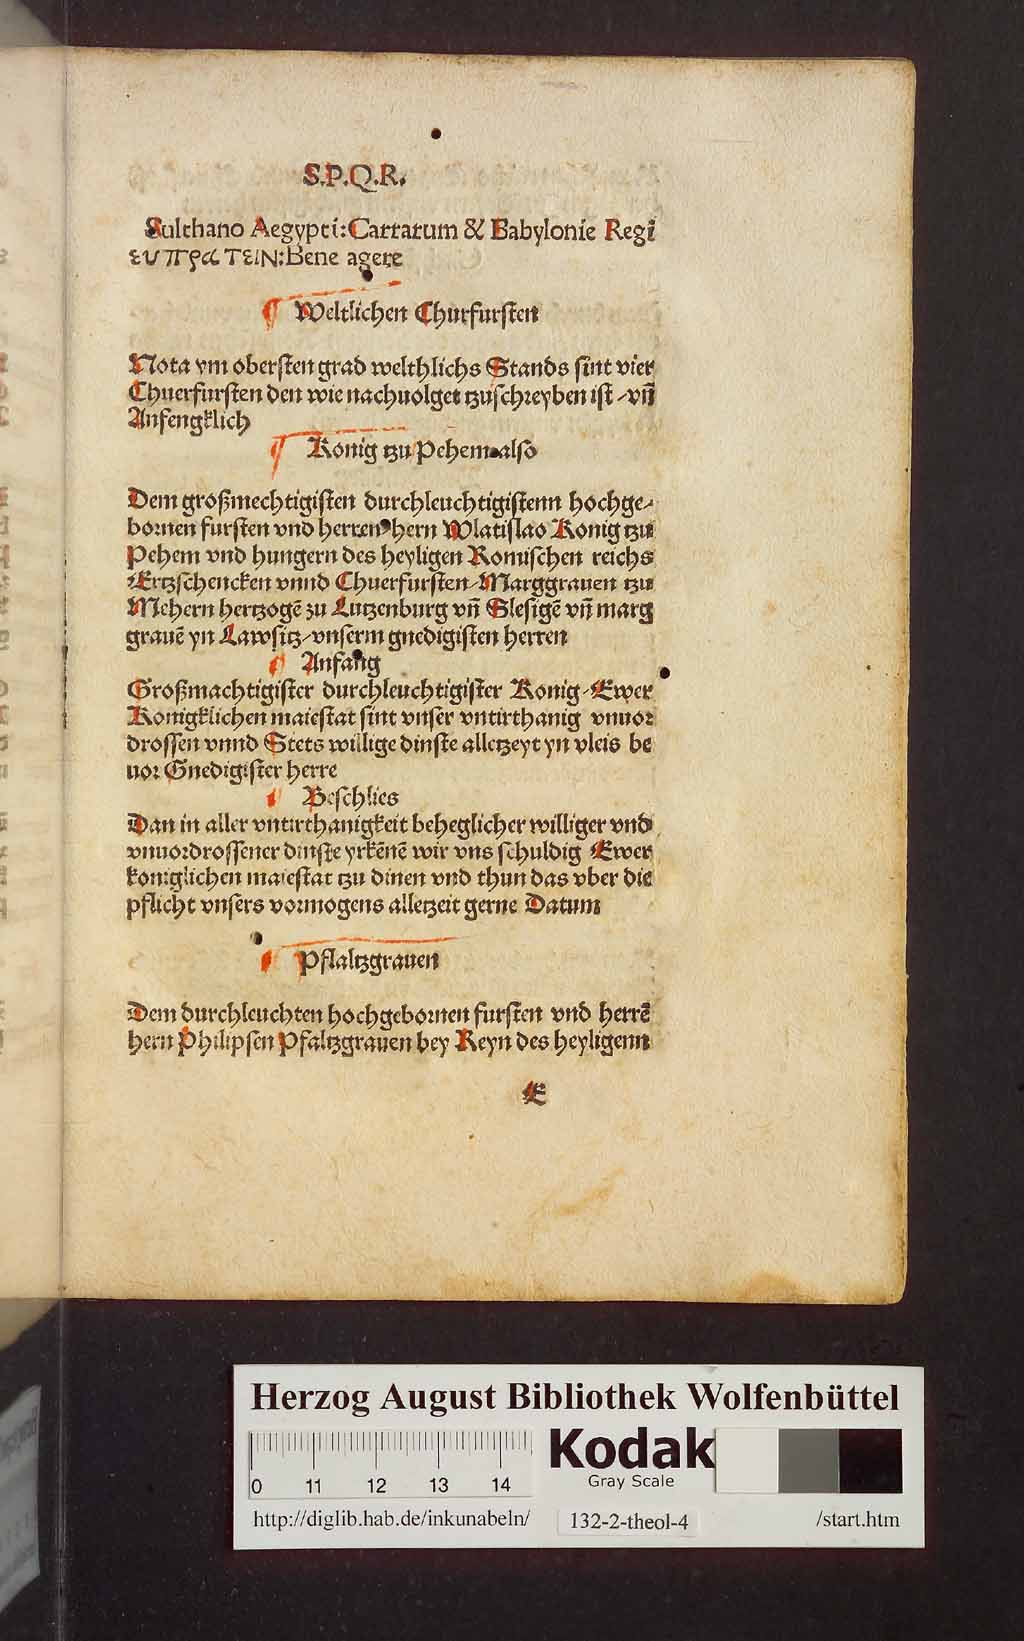 S.P.Q.R.
Sulthano Aegypti: Cartarum & Babylonie Regi
ευ πρατειν: Bene agere
¶ Weltlichen Churfursten
Nota vm obersten grad welthlichs Stands sint vier
Chuerfursten den wie nachuolget tzuschreyben ist / vn̄
Anfengklich
¶ Konig tzu Pehem also
Dem großmechtigisten durchleuchtigistenn hochge/
bornen fursten vnd herren hern Wlatislao Konig tzu
Pehem vnd hungern des heyligen Romischen reichs
Ertzschencken vnnd Chuerfursten / Marggrauen tzu
Mehern hertzogē zu Lutzenburg vn̄ Slesigē vn̄ marg
grauē yn Lawsitz / vnserm gnedigisten herren
¶ Anfang
Großmachtigister durchleuchtigister Konig / Ewer
Konigklichen maiestat sint vnser vntirthanig vnuor
drossen vnnd Stets willige dinste alletzeyt yn vleis be
uor Gnedigister herre
¶ Beschlies
Dan in aller vntirthanigkeit beheglicher williger vnd
vnuordrossener dinste yrkēnē wir vns schuldig Ewer
koniglichen maiestat tzu dinen vnd thun das vber die
pflicht vnsers vormogens alletzeit gerne Datum
¶ Pflaltzgrauen
Dem durchleuchten hochgebornen fursten vnd herrē
hern Philipsen Pfaltzgrauen bey Reyn des heyligenn
E
Herzog August Bibliothek Wolfenbüttel
0 11 12 13 14
Kodak
Gray Scale
http://diglib.hab.de/inkunabeln/ 132-2-theol-4 /start.htm